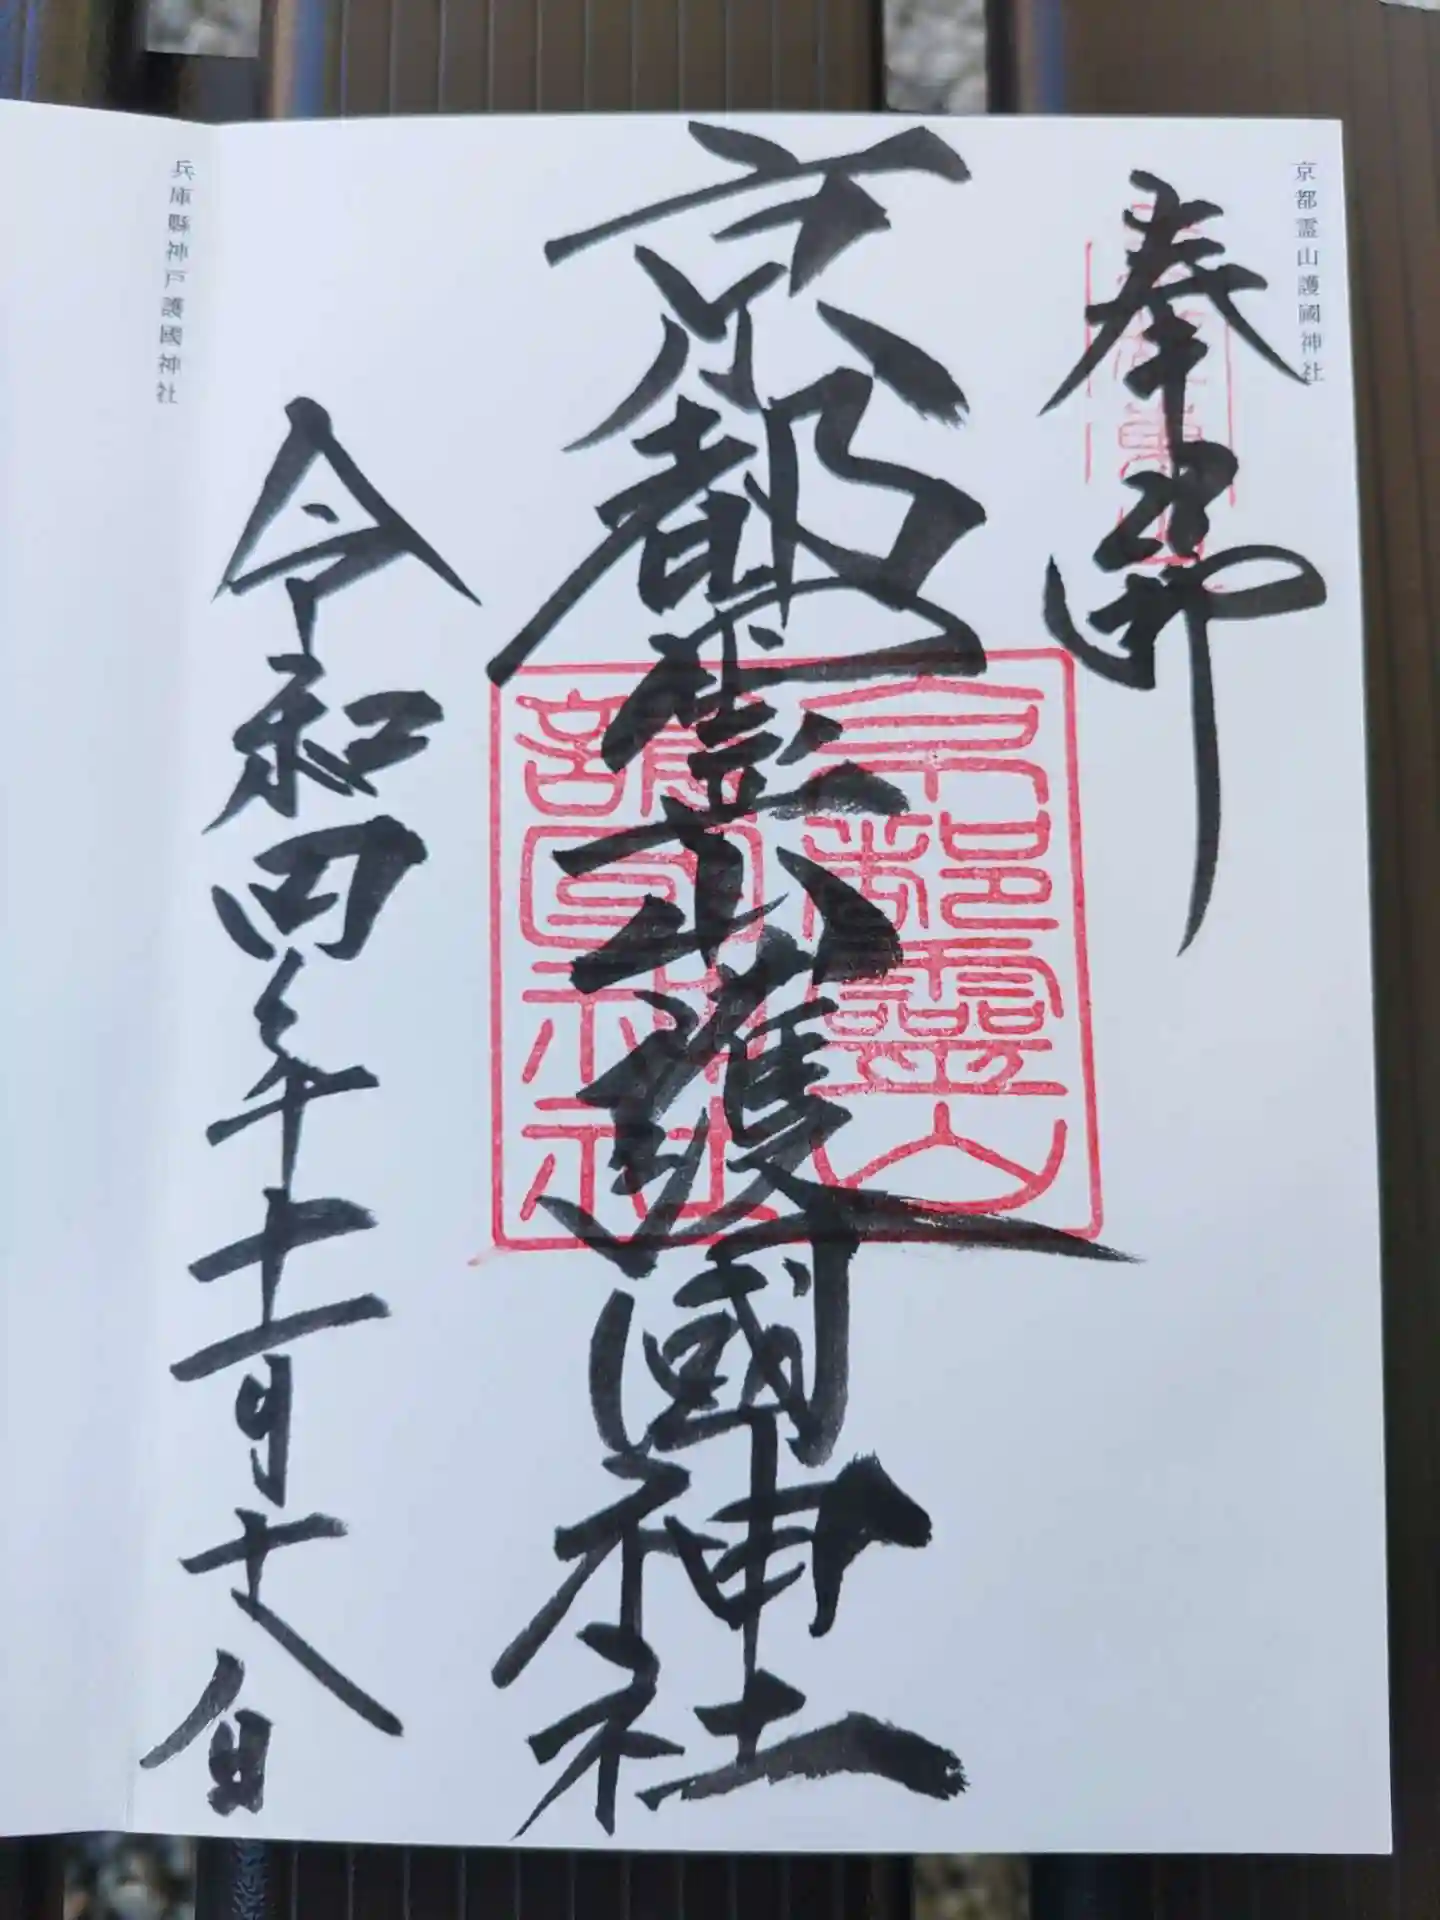 京都霊山護國神社
奉拝
京都霊山護國神社
京都靈山
護國神社
令和四年十一月十八日
兵庫縣神戸護國神社